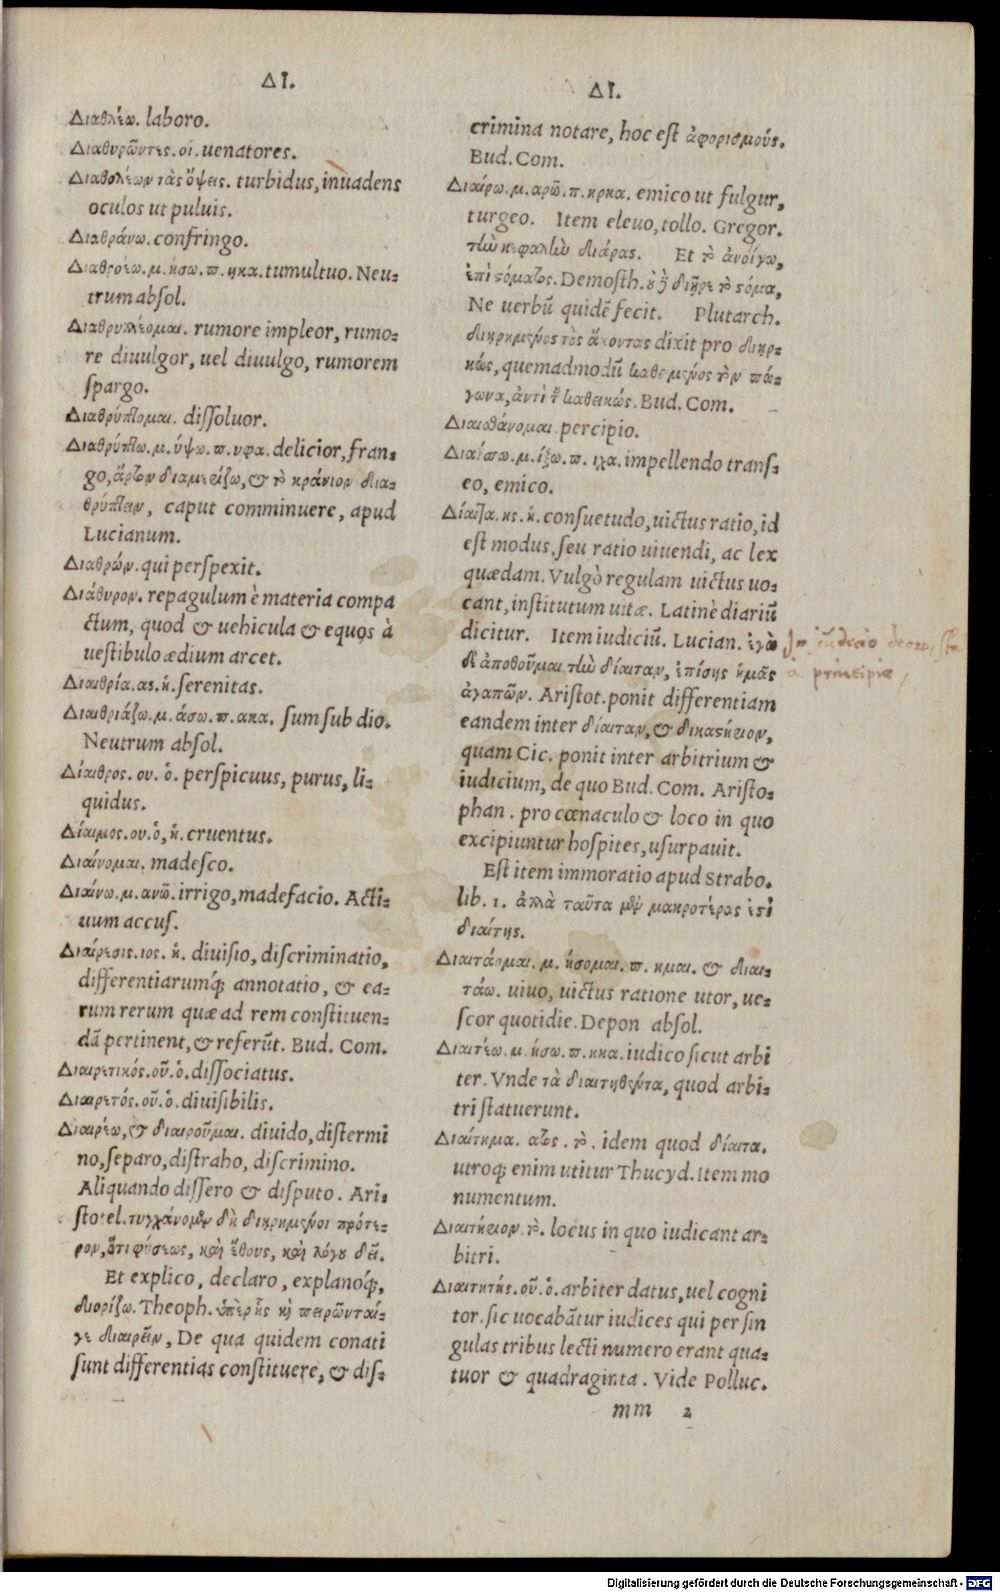 ΔΙ.
Διαθλέω. laboro.
Διαθυρῶντες. οἱ. uenatores.
Διαθολέων τὰς ὄψεις. turbidus, inuadens
oculos ut puluis.
Διαθράνω. confringo.
Διαθροέω. μ. ήσω. π. ηκα. tumultuo. Neu-
trum absol.
Διαθρυλλέομαι. rumore impleor, rumo-
re diuulgor, uel diuulgo, rumorem
spargo.
Διαθρύπτομαι. dissoluor.
Διαθρύπτω. μ. ύψω. π. υφα. delicior, fran-
go, ἄρτον διαμερίζω, & τὸ κράνιον δια-
θρύπτειν, caput comminuere, apud
Lucianum.
Διαθρών. qui perspexit.
Διάθυρον. repagulum è materia compa
ctum, quod & uehicula & equos à
uestibulo ædium arcet.
Διαιθρία. ας. ἡ. serenitas.
Διαιθριάζω. μ. άσω. π. ακα. sum sub dio.
Neutrum absol.
Δίαιθρος. ου. ὁ. perspicuus, purus, li-
quidus.
Δίαιμος. ου. ὁ, ἡ. cruentus.
Διαίνομαι. madesco.
Διαίνω. μ. ανῶ. irrigo, madefacio. Acti-
uum accus.
Διαίρεσις. ιος. ἡ. diuisio, discriminatio,
differentiarumq; annotatio, & ea-
rum rerum quæ ad rem constituen-
dã pertinent, & referũt. Bud. Com.
Διαιρετικός. οῦ. ὁ. dissociatus.
Διαιρετός. οῦ. ὁ. diuisibilis.
Διαιρέω, & διαιροῦμαι. diuido, distermi
no, separo, distraho, discrimino.
Aliquando dissero & disputo. Ari-
stotel. τυγχάνομεν δὴ διῃρημένοι πρότε-
ρον, ὅτι φύσεως, καὶ ἔθους, καὶ λόγου δεῖ.
Et explico, declaro, explanoq́;,
διορίζω. Theoph. ὑπὲρ ἧς καὶ πειρῶνταί-
γε διαιρεῖν, De qua quidem conati
sunt differentias constituere, & dis-
ΔΙ.
crimina notare, hoc est ἀφορισμούς.
Bud. Com.
Διαίρω. μ. αρῶ. π. ηρκα. emico ut fulgur,
turgeo. Item eleuo, tollo. Gregor.
τὴν κεφαλὴν διάρας. Et τὸ ἀνοίγω,
ἐπὶ στόματος. Demosth. διῇρε τὸ στόμα,
Ne uerbũ quidẽ fecit. Plutarch.
διῃρημένος τὸς ἄκοντας dixit pro διῃρ-
κώς, quemadmodũ καθειμένος τὸν πώ-
γωνα, ἀντὶ τοῦ καθεικώς. Bud. Com.
Διαισθάνομαι percipio.
Διαΐσσω. μ. ίξω. π. ιχα. impellendo trans-
eo, emico.
Δίαιτα. ης. ἡ. consuetudo, uictus ratio, id
est modus, seu ratio uiuendi, ac lex
quædam. Vulgò regulam uictus uo-
cant, institutum uitæ. Latinè diariũ
dicitur. Item iudiciũ. Lucian. ἐγὼ
δὲ ἀποθοῦμαι τὴν δίαιταν, ἐπίσης ἡμᾶς
ἀγαπῶν. Aristot. ponit differentiam
eandem inter δίαιταν, & δικαστήριον,
quam Cic. ponit inter arbitrium &
iudicium, de quo Bud. Com. Aristo-
phan. pro cœnaculo & loco in quo
excipiuntur hospites, usurpauit.
Est item immoratio apud Strabo.
lib. 1. ἀλλὰ ταῦτα μὲν μακροτέρας ἐστὶ
διαίτης.
Διαιτάομαι. μ. ήσομαι. π. ημαι. & διαι-
τάω. uiuo, uictus ratione utor, ue-
scor quotidie. Depon absol.
Διαιτέω. μ. ήσω. π. ηκα. iudico sicut arbi
ter. Vnde τὰ διαιτηθέντα, quod arbi-
tri statuerunt.
Διαίτημα. ατος. τὸ. idem quod δίαιτα.
utroq; enim utitur Thucyd. Item mo
numentum.
Διαιτήριον. τὸ. locus in quo iudicant ar-
bitri.
Διαιτητής. οῦ. ὁ. arbiter datus, uel cogni
tor. sic uocabãtur iudices qui per sin
gulas tribus lecti numero erant qua-
tuor & quadraginta. Vide Polluc.
mm 2
à principie
Digitalisierung gefördert durch die Deutsche Forschungsgemeinschaft - DFG